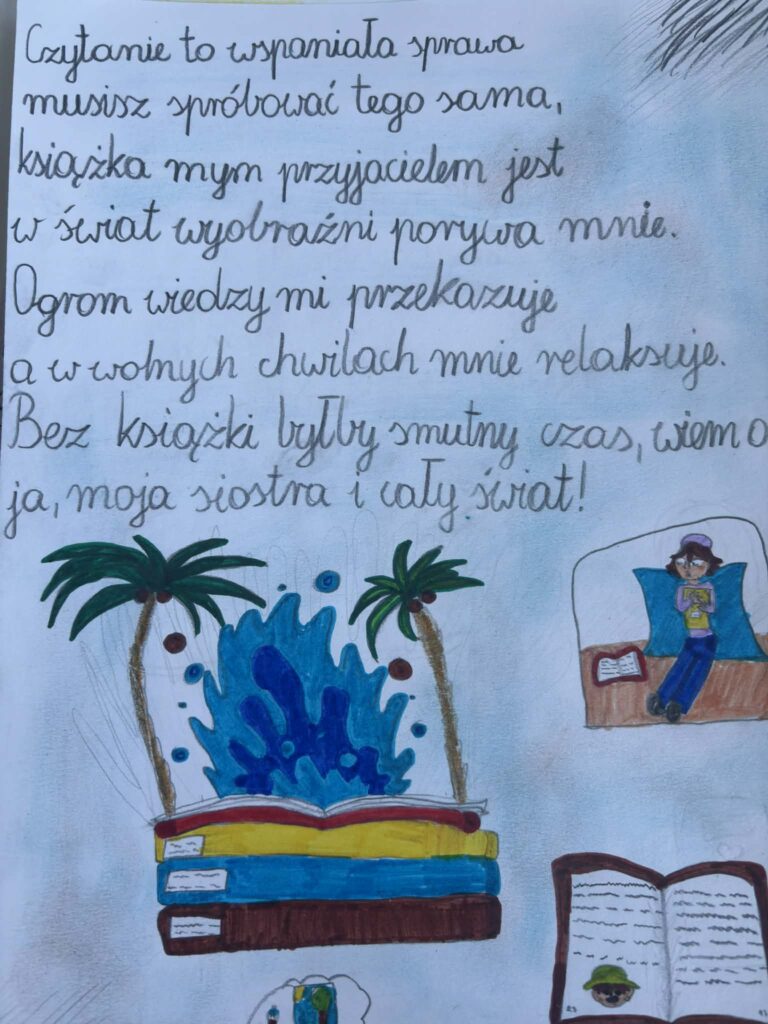 Czytanie to wspaniała sprawa
musisz spróbować tego sama,
książka mym przyjacielem jest
w świat wyobraźni porywa mnie.
Ogrom wiedzy mi przekazuje
a w wolnych chwilach mnie relaksuje.
Bez książki byłby smutny czas, wiem o
ja, moja siostra i cały świat!